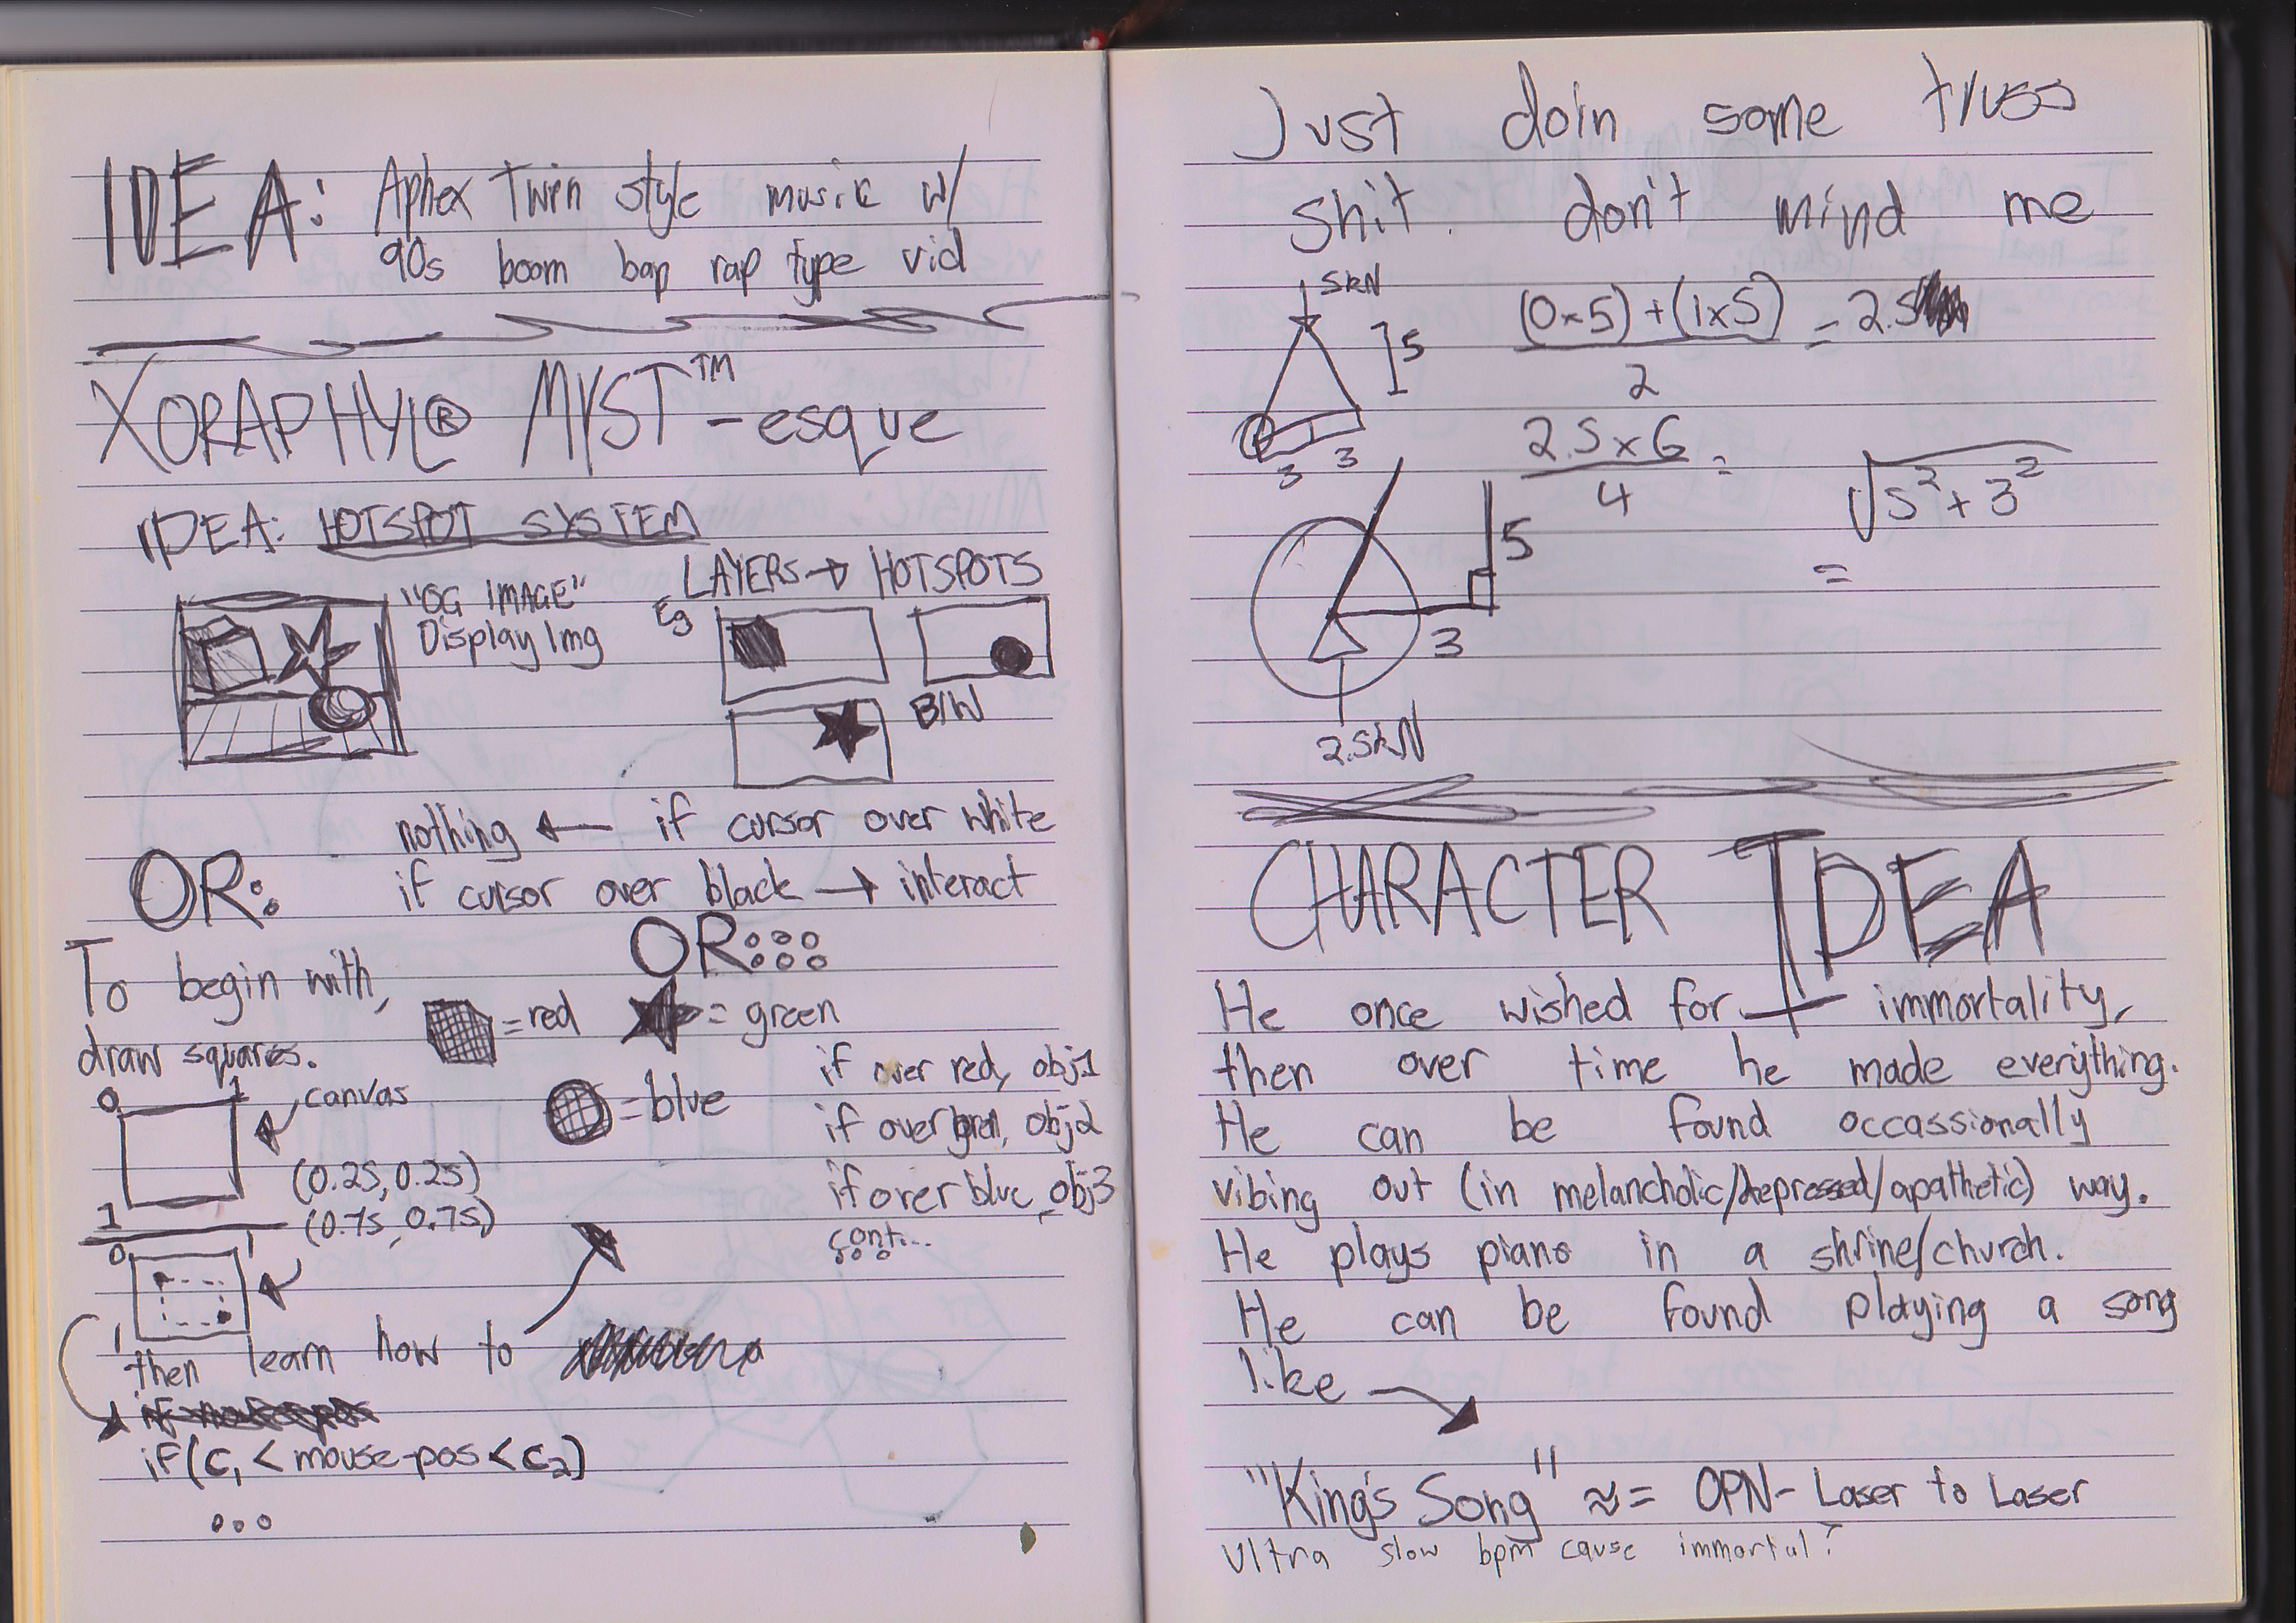 IDEA: Aphex Twin style music w/
90s boom bap rap type vid
XORAPHYL® MYST™-esque
IDEA: HOTSPOT SYSTEM
"OG IMAGE"
Display Img
LAYERS → HOTSPOTS
Eg
B/W
nothing ← if cursor over white
OR: if cursor over black → interact
OR:::
To begin with,
draw squares.
= red
= green
= blue
if over red, obj1
if over green, obj2
if over blue, obj3
cont...
0 1
canvas
1
(0.25, 0.25)
(0.75, 0.75)
0 1
1
then learn how to
if (C₁ < mouse-pos < C₂)
...
Just doin some truss
shit. don't mind me
5kN
5
3 3
(0×5) + (1×5) = 2.5
2
2.5 × 6 =
4
√5² + 3²
=
5
3
2.5kN
CHARACTER IDEA
He once wished for immortality,
then over time he made everything.
He can be found occassionally
vibing out (in melancholic/depressed/apathetic) way.
He plays piano in a shrine/church.
He can be found playing a song
like
"King's Song" ≈= OPN- Laser to Laser
ultra slow bpm cause immortal?